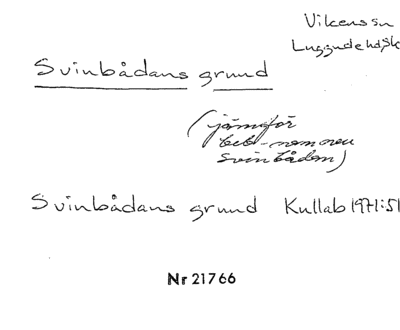 Vikens sn
Luggude hd, Sk
Svinbådans grund
(jämför
beb-namnen
Svinbådan)
Svinbådans grund Kullab 1971:51
Nr 21766